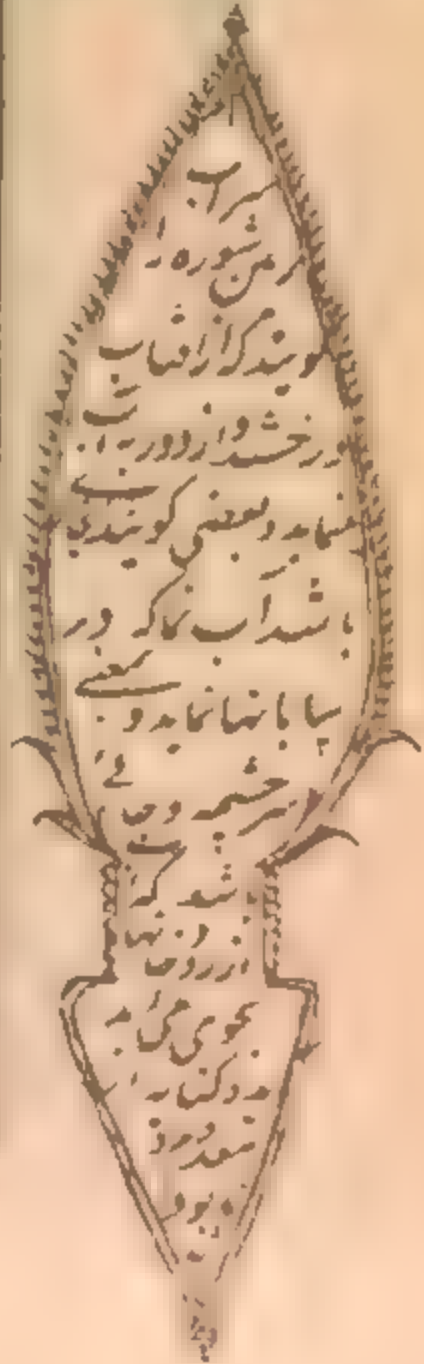 سراب
زمین شوره را
گویند که از آفتاب
درخشد و از دور به آب
نماید و بعضی گویند بخاری
باشد آب نما که در
بیابانها نماید و بمعنی
سرچشمه و جائی
باشد که آب
از رودخانها
بجوی می آید
و کنایه از
معدوم
بود